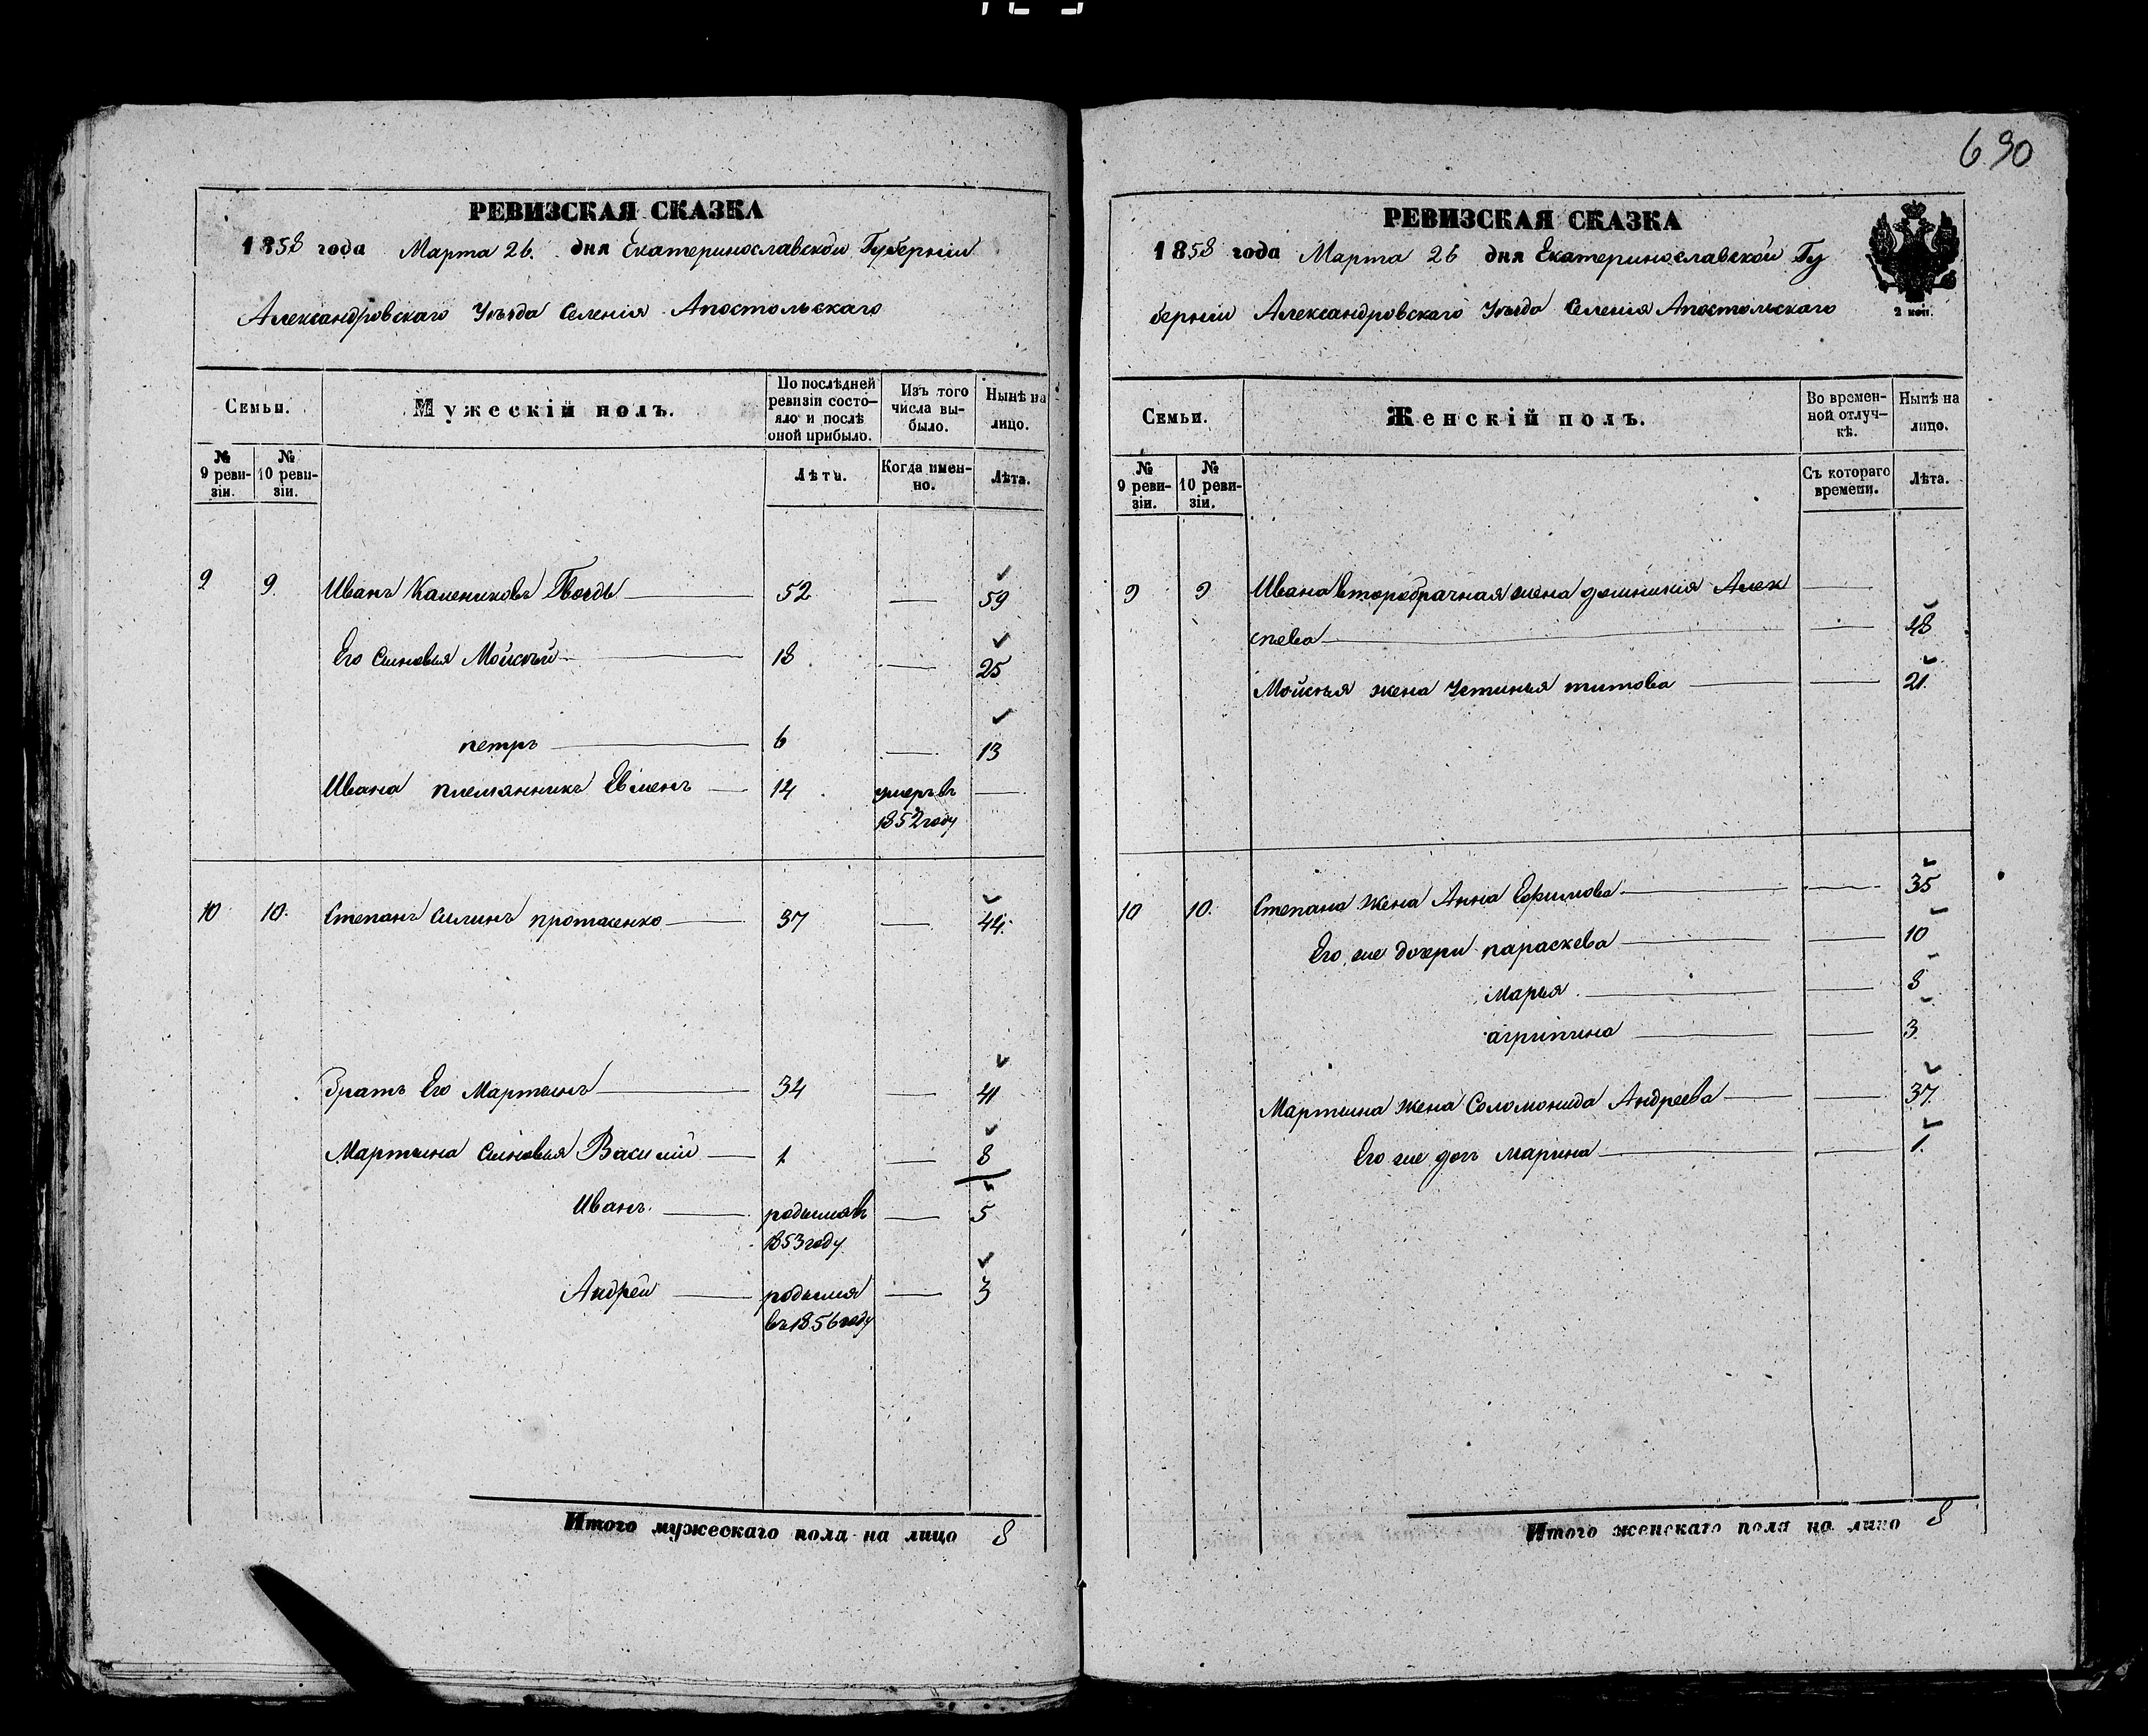 690
РЕВИЗСКАЯ СКАЗКА
1858 года Марта 26. дня Екатеринославской Губерніи
Александровскаго Уѣзда Селенія Апостольскаго
Семьи.
Мужескій полъ.
По послѣдней ревизіи состояло и послѣ оной прибыло.
Изъ того числа выбыло.
Нынѣ на лицо.
№ 9 ревизіи.
№ 10 ревизіи.
Лѣта.
Когда именно.
Лѣта.
9 9 Иванъ Калениковъ Гвоздь 52 — 59
Его сыновья Мойсѣй 18 — 25
петръ 6 — 13
Ивана племянникъ Евменъ 14 умеръ въ —
1852 году
10 10. Степанъ Силинъ протасенко 37 — 44.
Братъ Его Мартынъ 34 — 41
Мартына сыновья Василій 1 — 8
Иванъ. родился въ — 5
1853 году
Андрей родился — 3
въ 1856 году
Итого мужескаго пола на лицо 8
РЕВИЗСКАЯ СКАЗКА
1858 года Марта 26 дня Екатеринославской Гу
берніи Александровскаго Уѣзда Селенія Апостольскаго
2 коп.
Семьи.
Женскій полъ.
Во временной отлучкѣ.
Нынѣ на лицо.
№ 9 ревизіи.
№ 10 ревизіи.
Съ котораго времени.
Лѣта.
9 9 Ивана второбрачная жена домникія Алек —
сѣева — 48
Мойсѣя жена Устинья титова — 21.
10 10. Степана жена Анна Ефимова — 35
Его же дочери параскева — 10
Марья — 8
агрипина — 3.
Мартына жена Соломонида Андреева — 37
Его же дочь марина — 1.
Итого женскаго пола на лицо 8